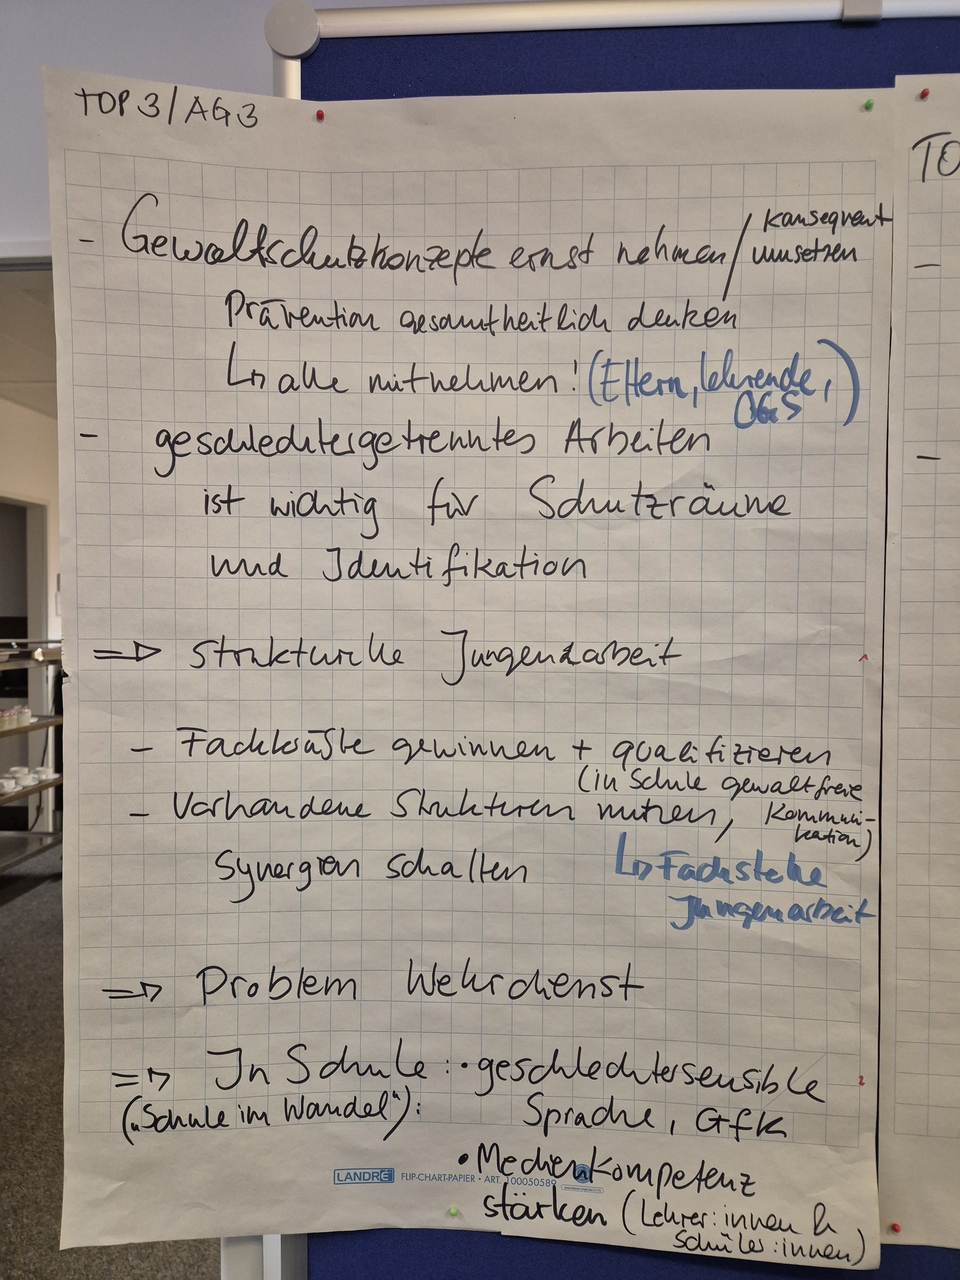 TOP 3 / AG 3
TO
- Gewaltschutzkonzepte ernst nehmen / konsequent umsetzen
Prävention gesamtheitlich denken
↳ alle mitnehmen! (Eltern, lehrende, OGS)
- geschlechtergetrenntes Arbeiten
ist wichtig für Schutzräume
und Identifikation
=> strukturelle Jungenarbeit
- Fachkräfte gewinnen + qualifizieren
(in Schule gewaltfreie
Kommuni-
kation)
- Vorhandene Strukturen nutzen,
Synergien schalten
↳ Fachstelle
Jungenarbeit
=> Problem Wehrdienst
=> In Schule: • geschlechtersensible
("Schule im Wandel"): Sprache, GfK
• Medienkompetenz
LANDRÉ FLIP-CHART-PAPIER · ART. 100050589
stärken (Lehrer:innen &
Schüler:innen)